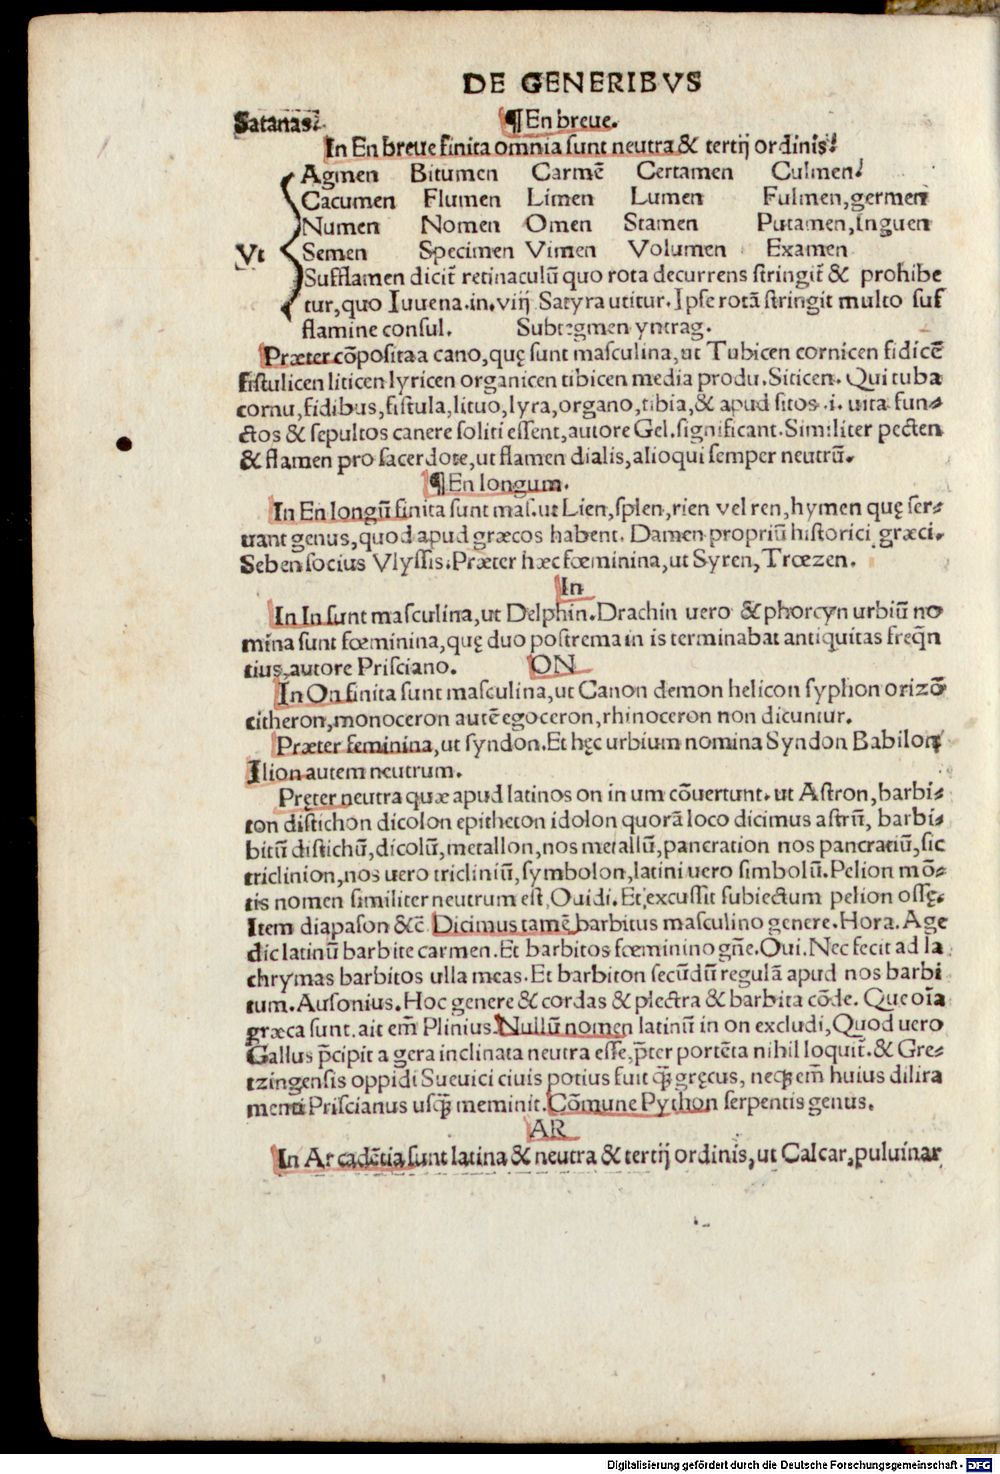 DE GENERIBVS
Satanas. ¶ En breue.
In En breue finita omnia sunt neutra & tertij ordinis.
Agmen Bitumen Carmē Certamen Culmen.
Cacumen Flumen Limen Lumen Fulmen, germen
Numen Nomen Omen Stamen Putamen, inguen
Vt Semen Specimen Vimen Volumen Examen
Sufflamen dicit̄ retinaculū quo rota decurrens stringit̄ & prohibe
tur, quo Iuuena. in. viij Satyra utitur. Ipse rotā stringit multo suf
flamine consul. Subtegmen yntrag.
Præter cōposita a cano, quę sunt masculina, ut Tubicen cornicen fidicē
fistulicen liticen lyricen organicen tibicen media produ. Siticen. Qui tuba
cornu, fidibus, fistula, lituo, lyra, organo, tibia, & apud sitos .i. uita fun⸗
ctos & sepultos canere soliti essent, autore Gel. significant. Similiter pecten
& flamen pro sacerdote, ut flamen dialis, alioqui semper neutrū.
¶ En longum.
In En longū finita sunt mas. ut Lien, splen, rien vel ren, hymen quę ser⸗
uant genus, quod apud græcos habent. Damen propriū historici græci.
Seben socius Vlyssis. Præter hæc fœminina, ut Syren, Trœzen.
In
In In sunt masculina, ut Delphin. Drachin uero & phorcyn urbiū no
mina sunt fœminina, quę duo postrema in is terminabat antiquitas freq̄n
tius, autore Prisciano. ON
In On finita sunt masculina, ut Canon demon helicon syphon orizō
citheron, monoceron autē egoceron, rhinoceron non dicuntur.
Præter feminina, ut syndon. Et hęc urbium nomina Syndon Babilon
Ilion autem neutrum.
Pręter neutra quæ apud latinos on in um cōuertunt. ut Astron, barbi⸗
ton distichon dicolon epitheton idolon quorā loco dicimus astrū, barbi⸗
bitū distichū, dicolū, metallon, nos metallū, pancration nos pancratiū, sic
triclinion, nos uero tricliniū, symbolon, latini uero simbolū. Pelion mō⸗
tis nomen similiter neutrum est, Ouidi. Et excussit subiectum pelion ossę.
Item diapason &c̄ Dicimus tamē barbitus masculino genere. Hora. Age
dic latinū barbite carmen. Et barbitos fœminino gn̄e. Oui. Nec fecit ad la
chrymas barbitos ulla meas. Et barbiton secūdū regulā apud nos barbi
tum. Ausonius. Hoc genere & cordas & plectra & barbita cōde. Que oīa
græca sunt. ait em̄ Plinius. Nullū nomen latinū in on excludi, Quod uero
Gallus p̄cipit a gera inclinata neutra esse, p̄ter portēta nihil loquit̄. & Gre⸗
tzingensis oppidi Sueuici ciuis potius fuit q̄ȝ gręcus, neqȝ em̄ huius dilira
menti Priscianus usq̄ȝ meminit. Cōmune Python serpentis genus.
AR
In Ar cadētia sunt latina & neutra & tertij ordinis, ut Calcar, puluinar
Digitalisierung gefördert durch die Deutsche Forschungsgemeinschaft - DFG